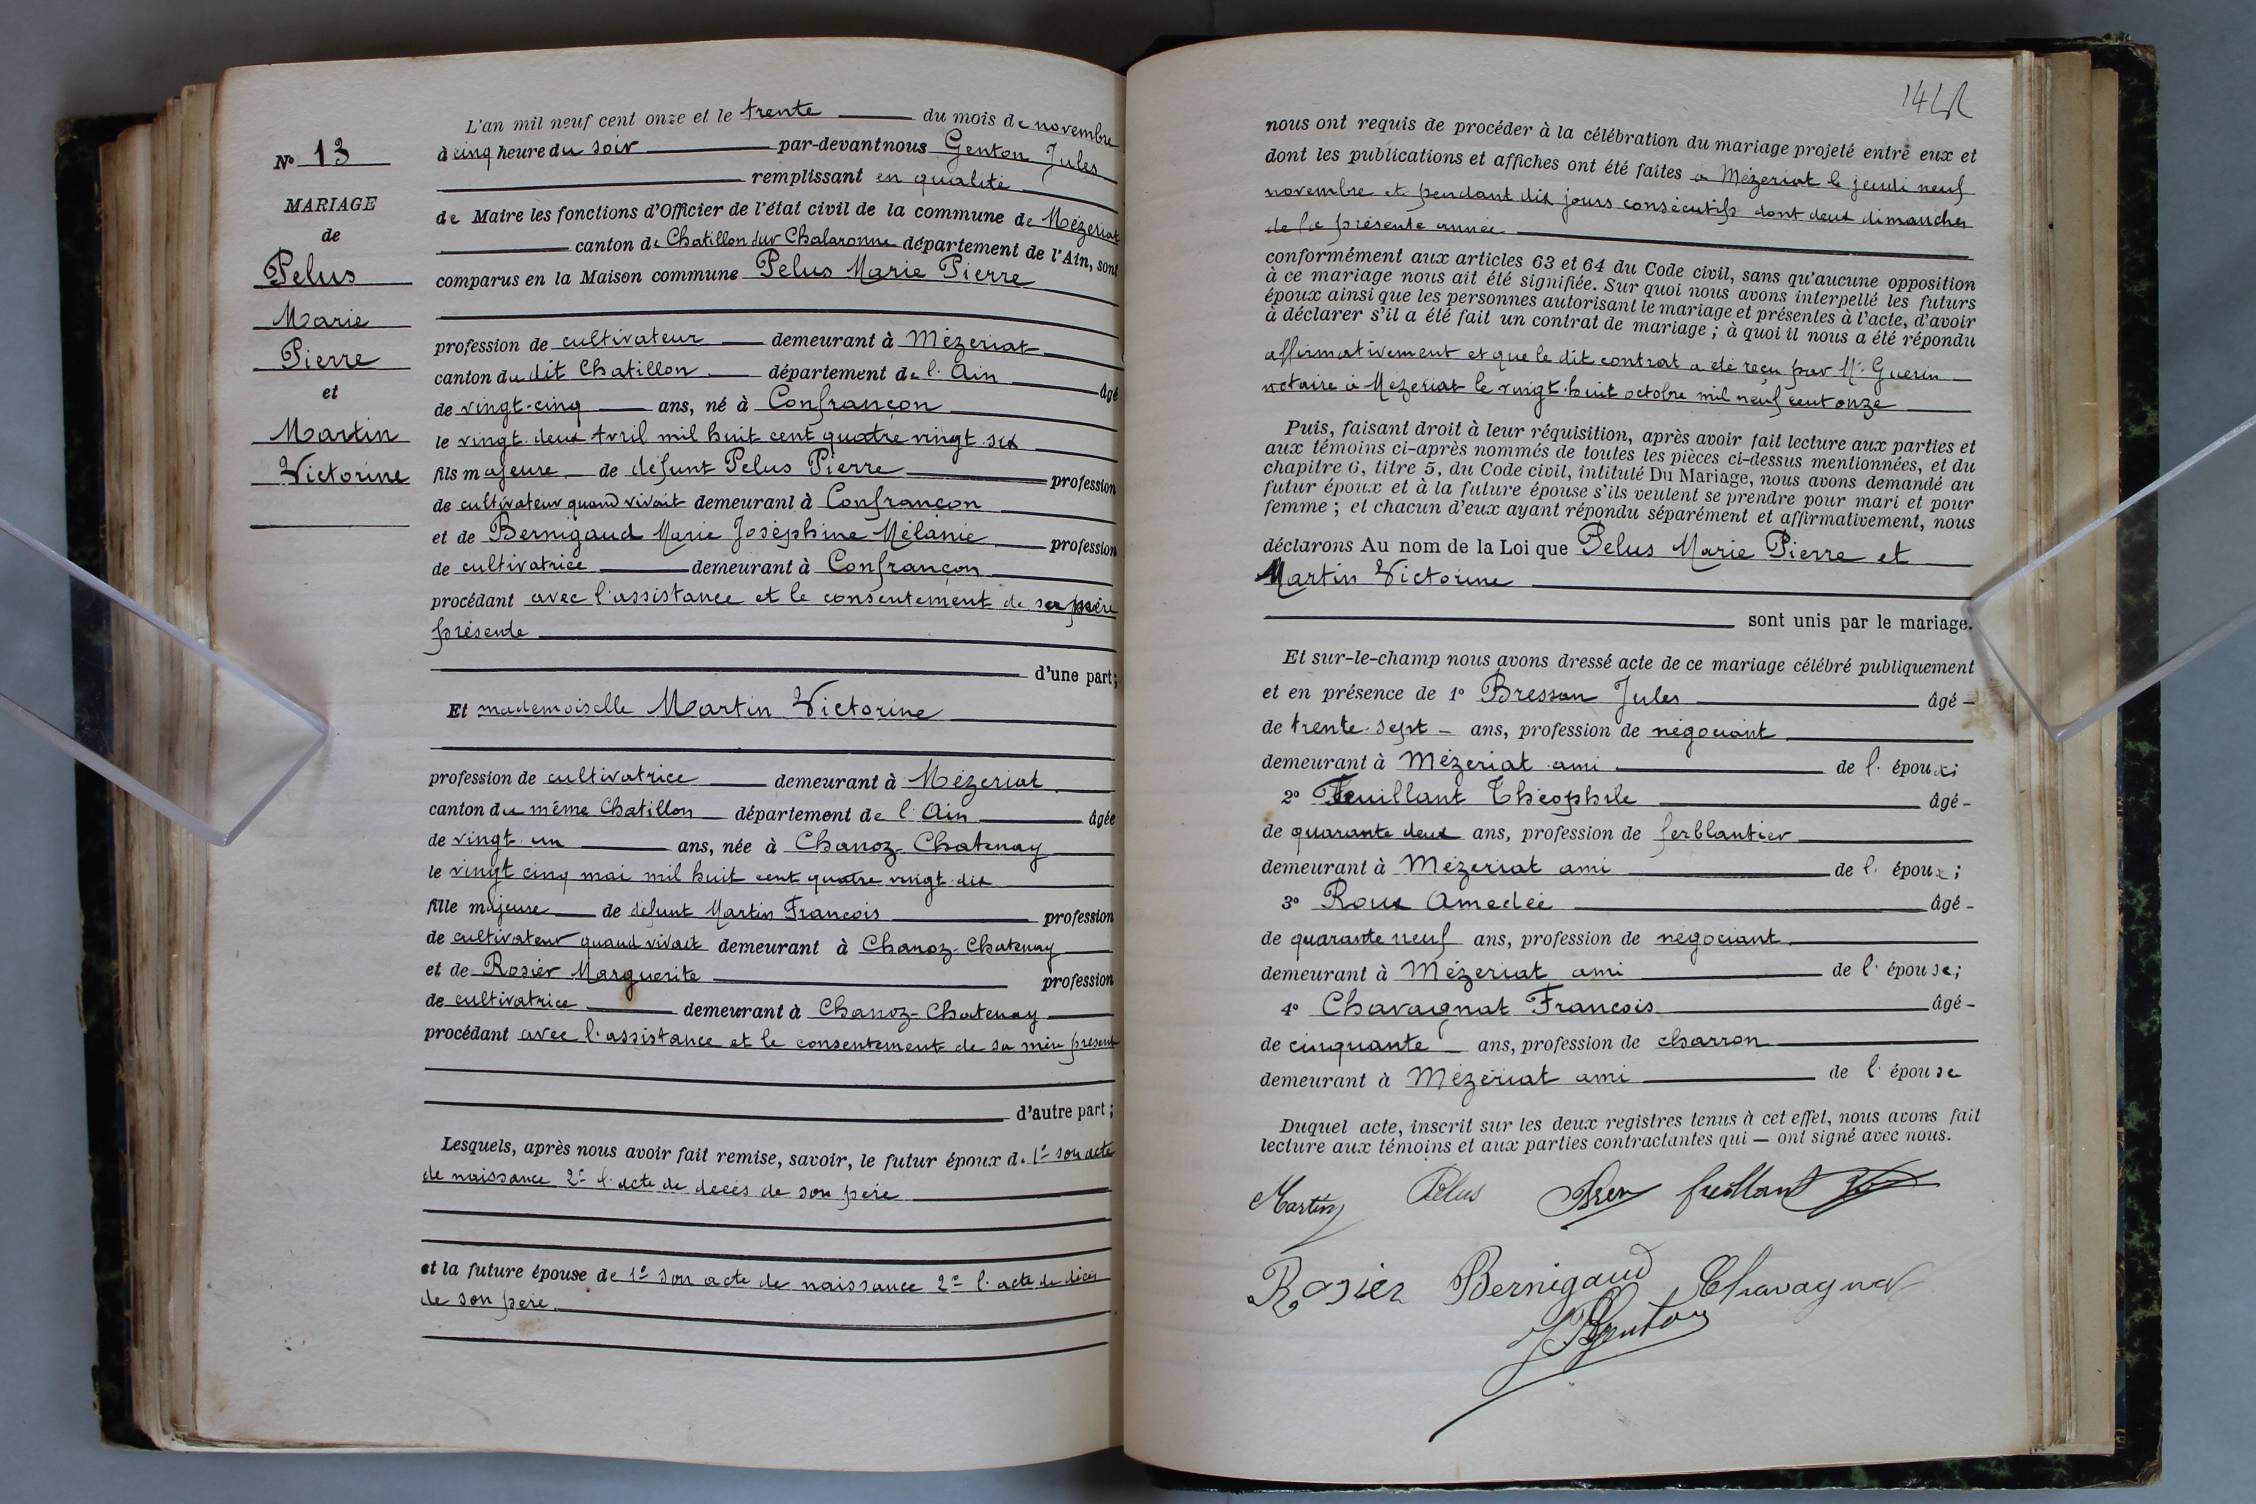 N° 13
MARIAGE
de
Pelus
Marie
Pierre
et
Martin
Victorine
L'an mil neuf cent onze et le trente du mois de novembre
à cinq heure du soir par-devant nous Genton Jules
remplissant en qualité
de Maire les fonctions d'Officier de l'état civil de la commune de Mézeriat
canton de Chatillon sur Chalaronne département de l'Ain, sont
comparus en la Maison commune Pelus Marie Pierre
profession de cultivateur demeurant à Mézeriat
canton du dit Chatillon département de l'Ain âgé
de vingt-cinq ans, né à Confrançon
le vingt-deux Avril mil huit cent quatre vingt six
fils majeure de défunt Pelus Pierre profession
de cultivateur quand vivait demeurant à Confrançon
et de Bernigaud Marie Joséphine Mélanie profession
de cultivatrice demeurant à Confrançon
procédant avec l'assistance et le consentement de sa mère
présente
d'une part;
Et mademoiselle Martin Victorine
profession de cultivatrice demeurant à Mézeriat
canton du même Chatillon département de l'Ain âgée
de vingt-un ans, née à Chanoz-Chatenay
le vingt cinq mai mil huit cent quatre vingt-dix
fille majeuse de défunt Martin Francois profession
de cultivateur quand vivait demeurant à Chanoz-Chatenay
et de Rosier Marguerite profession
de cultivatrice demeurant à Chanoz-Chatenay
procédant avec l'assistance et le consentement de sa mère présent
d'autre part;
Lesquels, après nous avoir fait remise, savoir, le futur époux d. 1° son acte
de naissance 2° l'acte de décès de son père
et la future épouse de 1° son acte de naissance 2° l'acte de décès
de son père
nous ont requis de procéder à la célébration du mariage projeté entre eux et
dont les publications et affiches ont été faites à Mézeriat le jeudi neuf
novembre et pendant dix jours consécutifs dont deux dimanches
de la présente année
conformément aux articles 63 et 64 du Code civil, sans qu'aucune opposition
à ce mariage nous ait été signifiée. Sur quoi nous avons interpellé les futurs
époux ainsi que les personnes autorisant le mariage et présentes à l'acte, d'avoir
à déclarer s'il a été fait un contrat de mariage; à quoi il nous a été répondu
affirmativement et que le dit contrat a été reçu par Me Guerin
notaire à Mézeriat le vingt-huit octobre mil neuf cent onze
Puis, faisant droit à leur réquisition, après avoir fait lecture aux parties et
aux témoins ci-après nommés de toutes les pièces ci-dessus mentionnées, et du
chapitre 6, titre 5, du Code civil, intitulé Du Mariage, nous avons demandé au
futur époux et à la future épouse s'ils veulent se prendre pour mari et pour
femme; et chacun d'eux ayant répondu séparément et affirmativement, nous
déclarons Au nom de la Loi que Pelus Marie Pierre et
Martin Victorine
sont unis par le mariage.
Et sur-le-champ nous avons dressé acte de ce mariage célébré publiquement
et en présence de 1° Bressan Jules âgé -
de trente-sept - ans, profession de négociant
demeurant à Mézeriat ami de l'époux;
2° Feuillant Théophile âgé -
de quarante deux ans, profession de ferblantier
demeurant à Mézeriat ami de l'époux;
3° Roux Amedée âgé -
de quarante neuf ans, profession de negociant
demeurant à Mézeriat ami de l'épouse;
4° Chavagnat Francois âgé -
de cinquante ans, profession de charron
demeurant à Mézeriat ami de l'épouse
Duquel acte, inscrit sur les deux registres tenus à cet effet, nous avons fait
lecture aux témoins et aux parties contractantes qui — ont signé avec nous.
Martin Pelus
Rosier Bernigaud Chavagnat
Genton